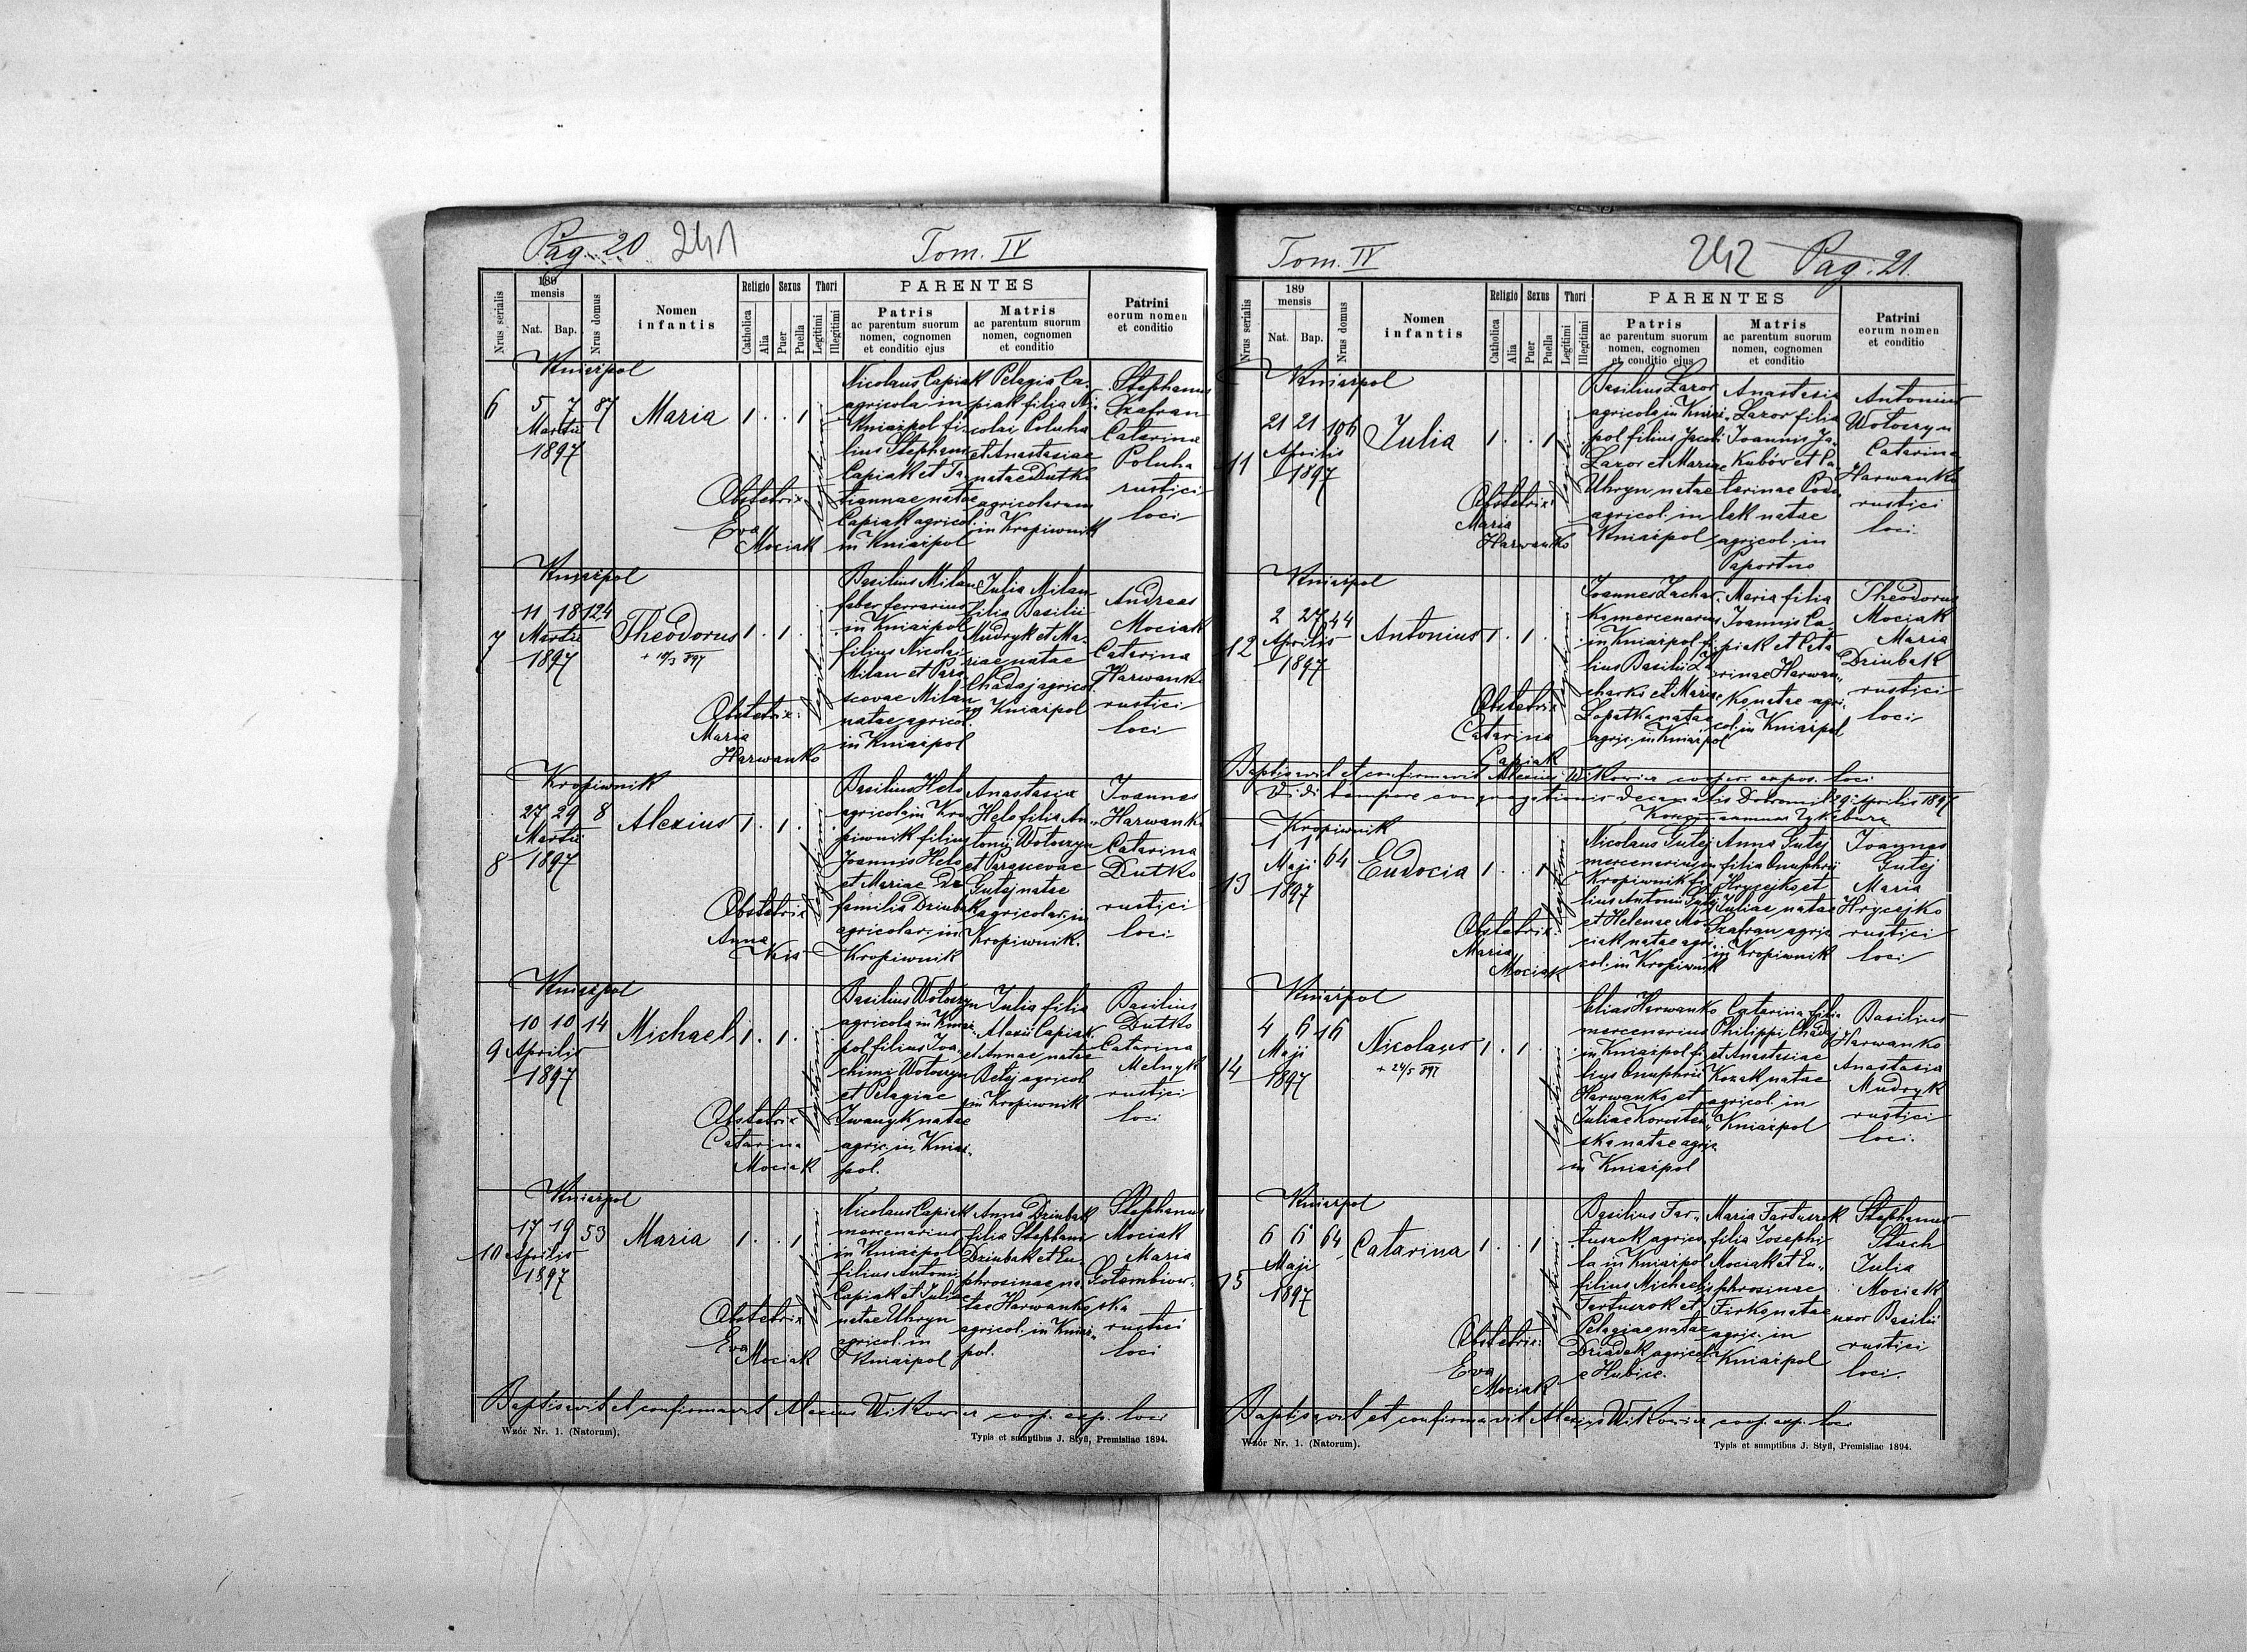 Pag. 20 241
Tom. IV
Nrus serialis
189
mensis
Nat.
Bap.
Nrus domus
Nomen
infantis
Religio
Catholica
Alia
Sexus
Puer
Puella
Thori
Legitimi
Illegitimi
PARENTES
Patris
ac parentum suorum
nomen, cognomen
et conditio ejus
Matris
ac parentum suorum
nomen, cognomen
et conditio
Patrini
eorum nomen
et conditio
Kniażpol
6
5 7 87
Martii
1897
Maria
1 . . 1
legitimi
Obstetrix
Eva
Mociak
Nicolaus Capiak
agricola in
Kniażpol fi-
lius Stephani
Capiak et Ta
tiannae natae
Capiak agricol.
in Kniażpol
Pelagia Ca-
piak filia Ni-
colai Poluha
et Anastasiae
natae Dutko
agricolarum
in Kropiwnik
Stephanus
Szafran
Catarina
Poluha
rustici
loci
Kniażpol
7
11 18 124
Martii
1897
Theodorus
+ 19/3 897
1 . 1 .
legitimi
Obstetrix:
Maria
Harwanko
Basilius Milan
faber ferrarius
in Kniażpol
filius Nicolai
Milan et Para
scevae Milan
natae agricol.
in Kniażpol
Julia Milan
filia Basilii
Mudryk et Ma-
riae natae
Chadaj agricol.
in Kniażpol
Andreas
Mociak
Catarina
Harwanko
rustici
loci
Kropiwnik
8
27 29 8
Martii
1897
Alexius
1 . 1 .
legitimi
Obstetrix
Anna
Kis
Basilius Helo
agricola in Kro
piwnik filius
Joannis Helo
et Mariae de
familia Dziubak
agricolar. in
Kropiwnik
Anastasia
Helo filia An-
tonii Wołoszyn
et Parascevae
Gutej natae
agricolar. in
Kropiwnik.
Joannes
Harwanko
Catarina
Dutko
rustici
loci
Kniażpol
9
10 10 14
Aprilis
1897
Michael
1 . 1 .
legitimi
Obstetrix
Catarina
Mociak
Basilius Wołoszyn
agricola in Kniaż-
pol filius Joa-
chimi Wołoszyn
et Pelagiae
Iwanyk natae
agric. in Kniaż-
pol.
Julia filia
Alexii Capiak
et Annae natae
Betej agricol.
in Kropiwnik
Basilius
Dutko
Catarina
Melnyk
rustici
loci
Kniażpol
10
17 19 53
Aprilis
1897
Maria
1 . . 1
legitimi
Obstetrix
Eva
Mociak
Nicolaus Capiak
mercenarius
in Kniażpol
filius Antonii
Capiak et Juliae
natae Uhryn
agricol. in
Kniażpol
Anna Dziubak
filia Stephani
Dziubak et Eu-
phrosinae na-
tae Harwanko
agricol. in Kniaż-
pol.
Stephanus
Mociak
Maria
Gołembiow-
ska
rustici
loci
Baptisavit et confirmavit Alexius Witkowicz coop. exp. loci
Wzór Nr. 1. (Natorum).
Typis et sumptibus J. Styfi, Premisliae 1894.
Tom. IV
242 Pag. 21.
Nrus serialis
189
mensis
Nat.
Bap.
Nrus domus
Nomen
infantis
Religio
Catholica
Alia
Sexus
Puer
Puella
Thori
Legitimi
Illegitimi
PARENTES
Patris
ac parentum suorum
nomen, cognomen
et conditio ejus
Matris
ac parentum suorum
nomen, cognomen
et conditio
Patrini
eorum nomen
et conditio
Kniażpol
11
21 21 106
Aprilis
1897
Julia
1 . . 1
legitimi
Obstetrix
Maria
Harwanko
Basilius Lazor
agricola in Kniaż-
pol filius Jacobi
Lazor et Mariae
Uhryn natae
agricol. in
Kniażpol
Anastasia
Lazor filia
Joannis Ja-
kubów et Ca-
tarinae Podo
lak natae
agricol. in
Paportno
Antonius
Wołoszyn
Catarina
Harwanko
rustici
loci
Kniażpol
12
2 27 44
Aprilis
1897
Antonius
1 . 1 .
legitimi
Obstetrix
Catarina
Capiak
Joannes Zachar-
ko mercenarius
in Kniażpol fi-
lius Basilii Za
charko et Mariae
Łopatka natae
agric. in Kniażpol
Maria filia
Joannis Ca-
piak et Cata
rinae Harwan-
ko natae agri-
col. in Kniażpol
Theodorus
Mociak
Maria
Dziubak
rustici
loci
Baptisavit et confirmavit Alexius Witkowicz cooper. expos. loci
Vidi tempore congregationis decanalis Dobromil 29 Aprilis 1897
Kropiwnik
13
1 1 64
Maji
1897
Eudocia
1 . . 1
legitimi
Obstetrix
Maria
Mociak
Nicolaus Gutej
mercenarius in
Kropiwnik fi-
lius Antonii Gutej
et Helenae Mo-
ciak natae agri-
col. in Kropiwnik
Anna Gutej
filia Onuphrii
Hrycejko et
Juliae natae
Szafran agric.
in Kropiwnik
Joannes
Gutej
Maria
Hrycejko
rustici
loci
Kniażpol
14
4 6 16
Maji
1897
Nicolaus
+ 24/5 897
1 . 1 .
legitimi
Elias Harwanko
mercenarius
in Kniażpol fi-
lius Onuphrii
Harwanko et
Juliae Korosten-
ska natae agric.
in Kniażpol
Catarina filia
Philippi Chadaj
et Anastasiae
Kozak natae
agricol. in
Kniażpol
Basilius
Harwanko
Anastasia
Mudryk
rustici
loci.
Kniażpol
15
6 6 64
Maji
1897
Catarina
1 . . 1
legitimi
Obstetrix:
Eva
Mociak
Basilius Far-
tuszok agrico
la in Kniażpol
filius Michaelis
Fartuszok et
Pelagiae natae
Dziadek agricol.
e Hubice.
Maria Fartuszok
filia Josephi
Mociak et Eu-
phrosinae
Firko natae
agric. in
Kniażpol
Stephanus
Stach
Julia
Mociak
uxor Basilii
rustici
loci.
Baptisavit et confirmavit Alexius Witkowicz coop. exp. loci
Wzór Nr. 1. (Natorum).
Typis et sumptibus J. Styfi, Premisliae 1894.